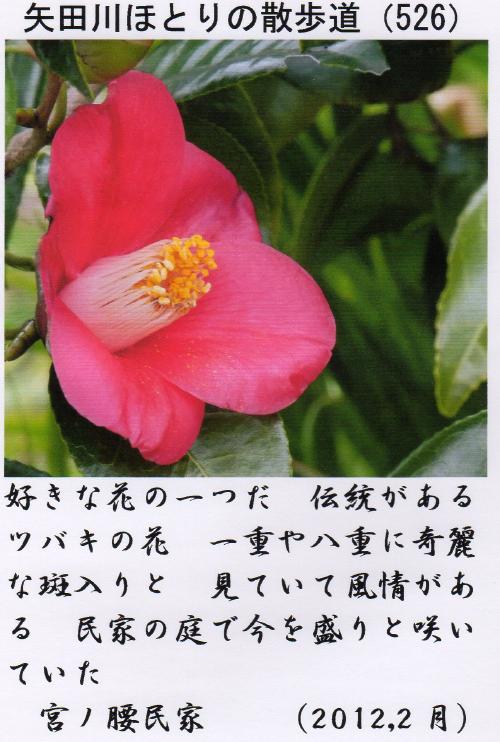 矢田川ほとりの散歩道（526）
好きな花の一つだ　伝統がある
ツバキの花　一重や八重に奇麗
な斑入りと　見ていて風情があ
る　民家の庭で今を盛りと咲い
ていた
宮ノ腰民家　（2012,2月）